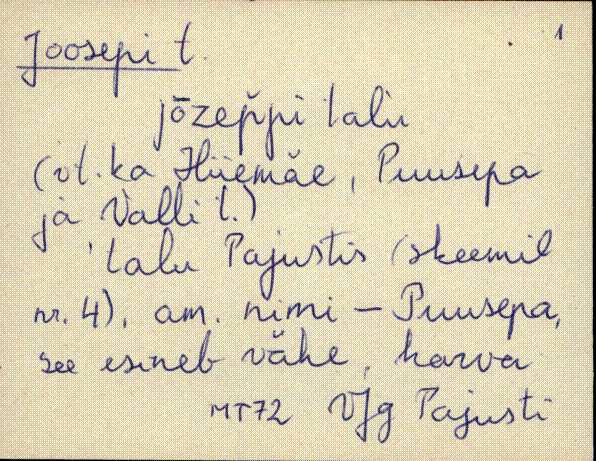 1
Joosepi t.
jōzep̆pi talu
(vt. ka Hiiemäe, Puusepa
ja Valli t.)
talu Pajustis (skeemil
nr. 4), am. nimi – Puusepa,
see esineb vähe, harva
MT72 VJg Pajusti